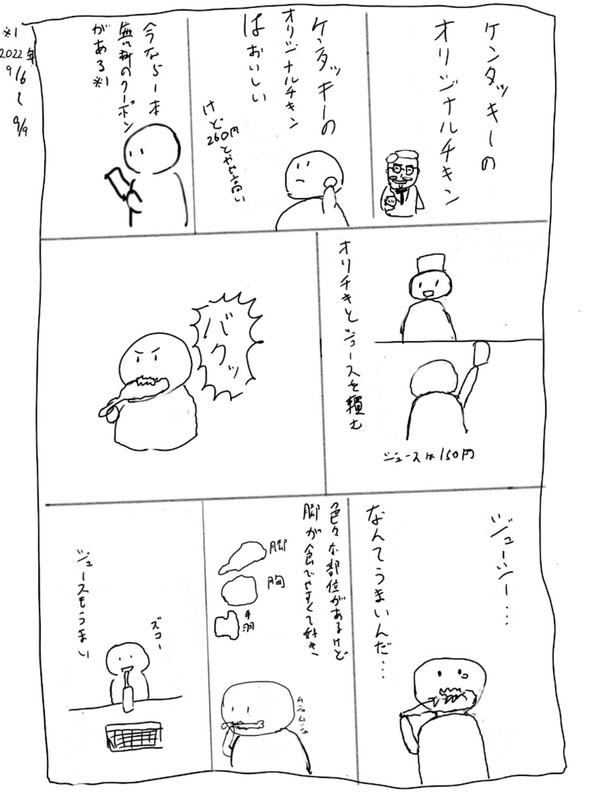 ケンタッキーの
オリジナルチキン
ケンタッキーの
オリジナルチキン
はおいしい
けど260円とやや高い
今なら一本
無料のクーポン
がある※1
※1
2022年
9/6
〜
9/9
オリチキとジュースを頼む
ジュースは150円
バクッ
ジューシー…
なんてうまいんだ…
色々な部位があるけど
脚が食べやすくて好き
脚
胸
手羽
ムシャムシャ
ズコー
ジュースもうまい